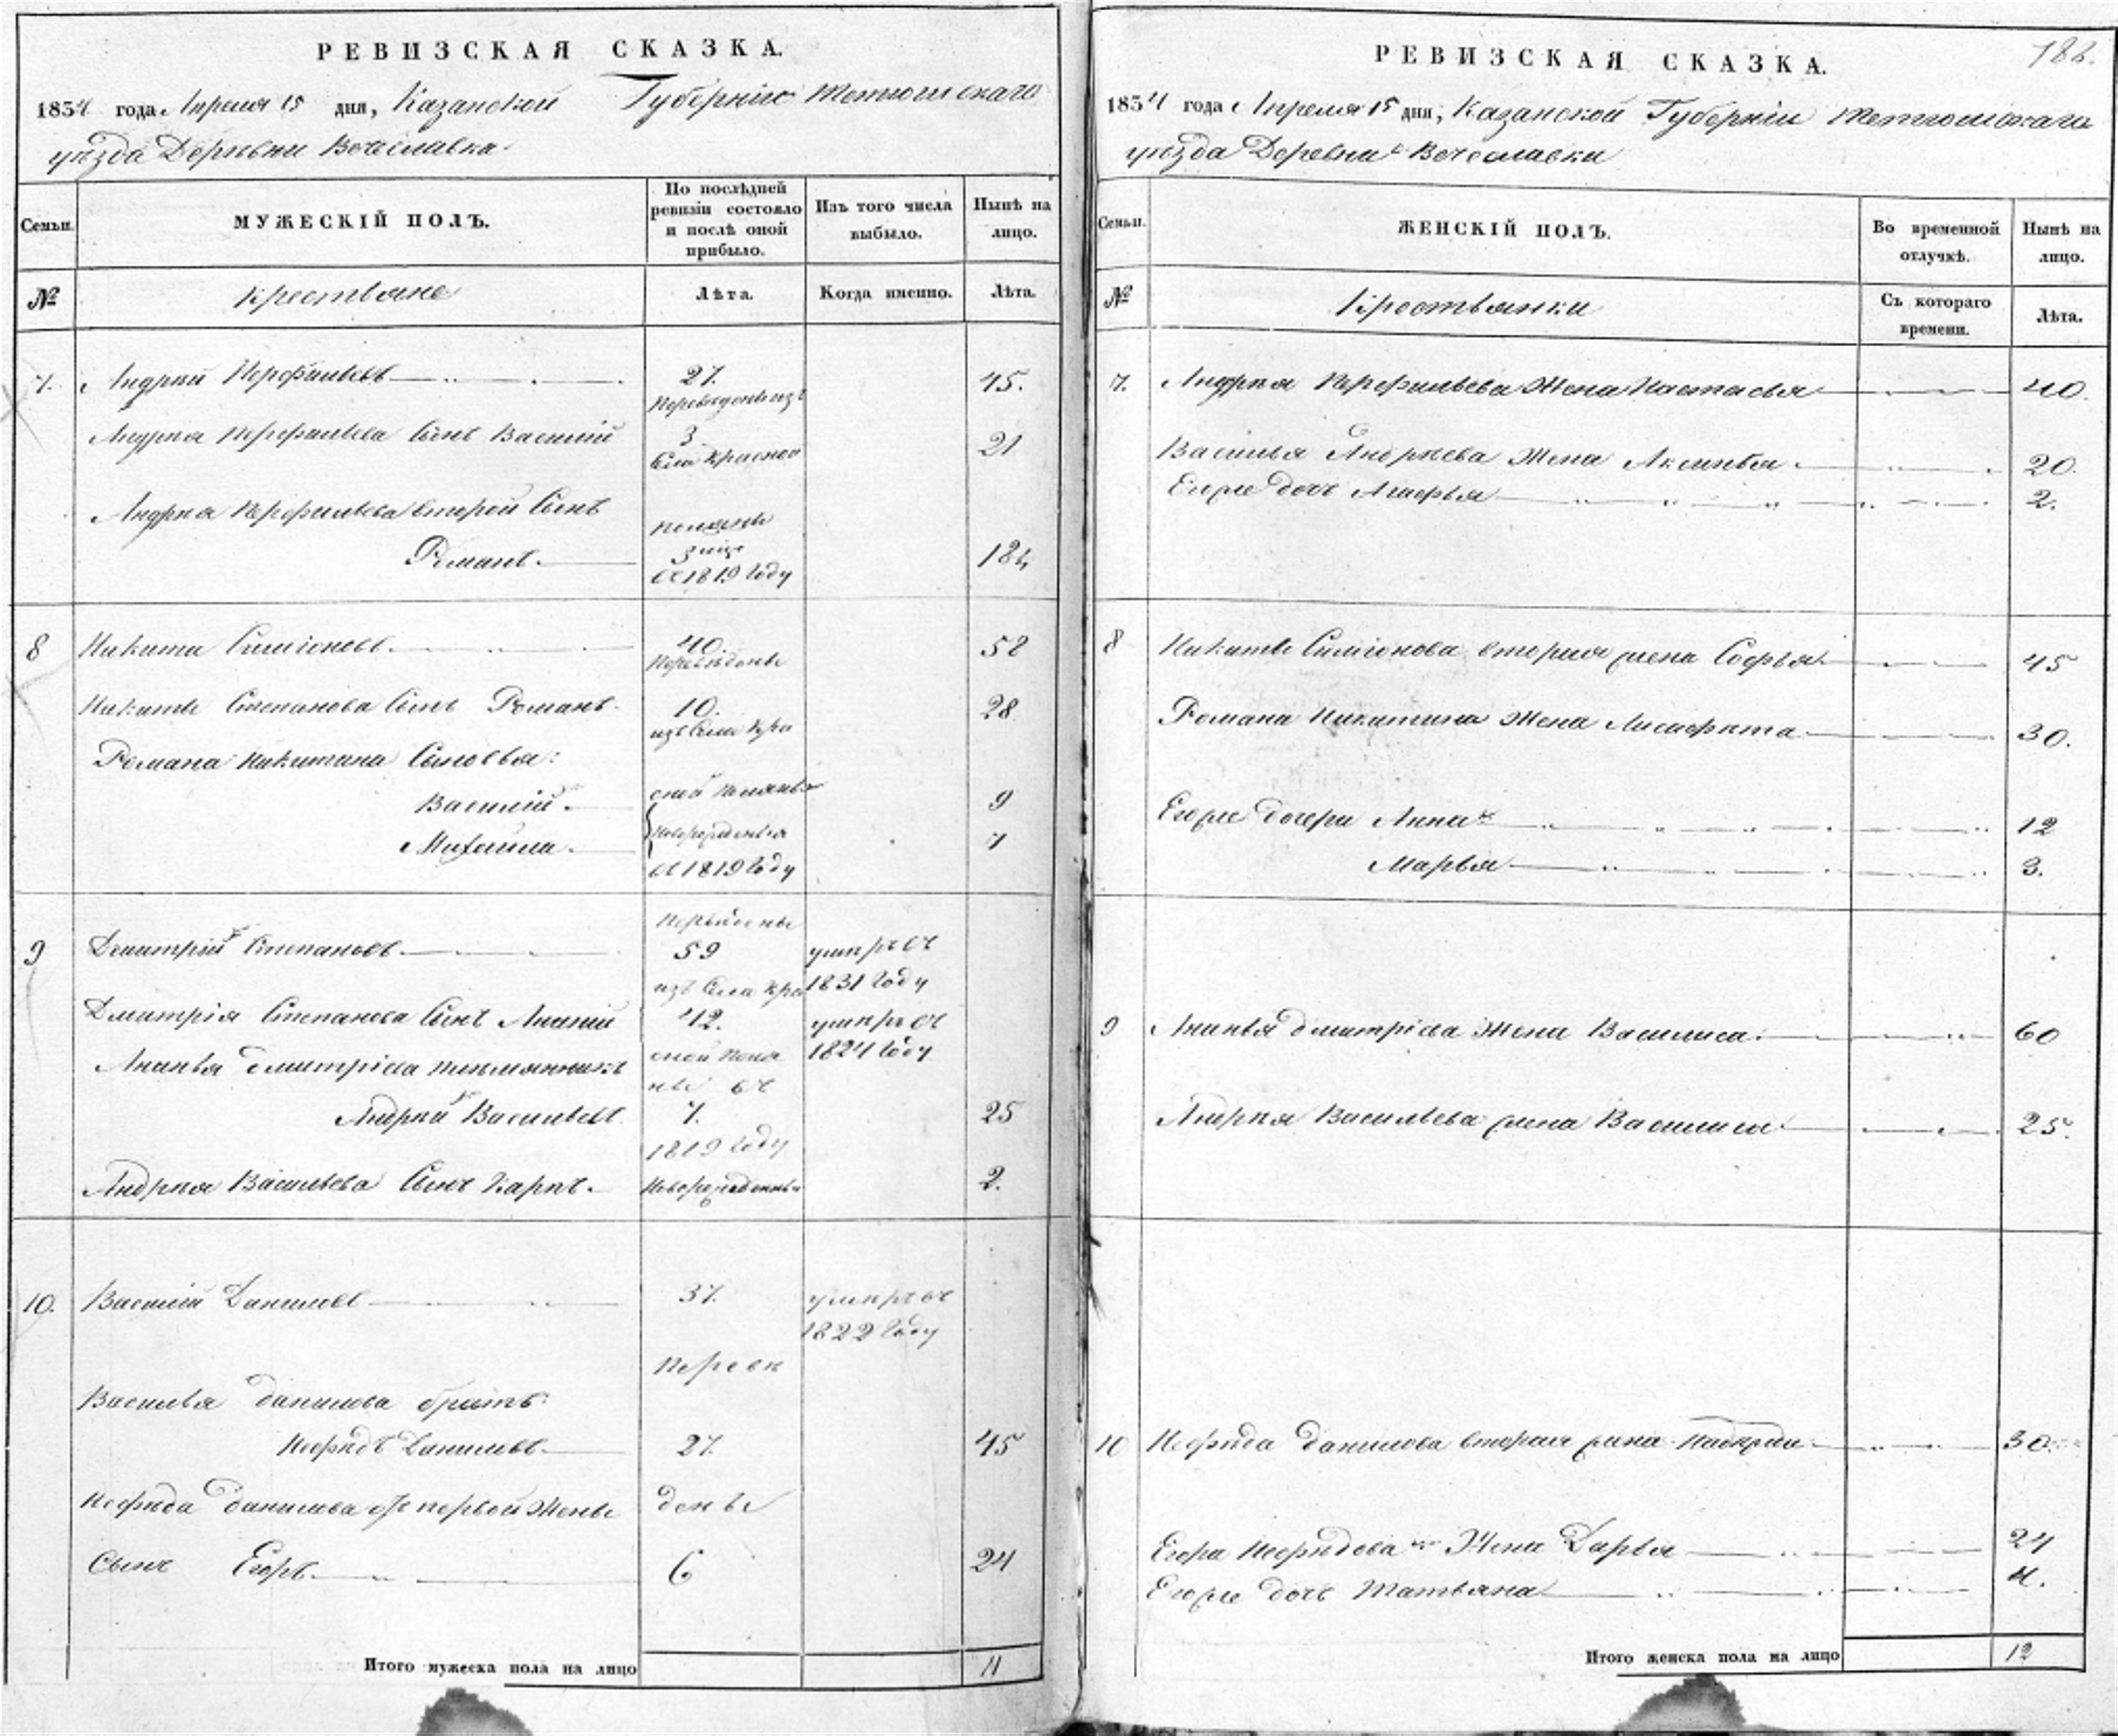 РЕВИЗСКАЯ СКАЗКА.
1834 года Апреля 15 дня, Казанской Губернии Тетюшскаго
уѣзда Деревни Вечеславка
Семьи.
МУЖЕСКІЙ ПОЛЪ.
По послѣдней
ревизіи состояло
и послѣ оной
прибыло.
Изъ того числа
выбыло.
Нынѣ на
лицо.
№
Крестьяне
Лѣта.
Когда именно.
Лѣта.
7. Андрей Перфильевъ 27. 45.
Переведены изъ
Андрея Перфильева Сынъ Василий 3. 21
Села Красной
Андрея Перфильева второй Сынъ
Поляны
Романъ. 18
съ 1819 Году
8 Никита Симіоновъ. 40. 58
Переведены
Никиты Степанова Сынъ Романъ 10. 28
изъ Села Кра
Романа Никитина Сыновья:
сной Поляны
Василий. 9
Новорожденныя
Михаила. 7
съ 1819 Году
Переведены
9 Дмитрий Степановъ. 59 умиръ въ
изъ Села Кра 1831 Году
Дмитрія Степанова Сынъ Ананий 42. умиръ въ
Ананья Дмитріева племянникъ сной Поля 1824 Году
ны въ
Андрей Васильевъ 7. 25
1819 Году
Андрея Васильева Сынъ Карпъ. Новорожденны 2.
10. Василий Даниловъ 37. умиръ въ
1822 Году
Переве
Василья Данилова братъ:
Нефедъ Даниловъ. 27. 45
Нефеда Данилова отъ первой Жены дены
Сынъ Егоръ. 6 24
Итого мужеска пола на лицо 11
РЕВИЗСКАЯ СКАЗКА.
186.
1834 года Апреля 15 дня, Казанской Губерніи Тетюшскаго
уѣзда Деревни Вечеславки
Семьи.
ЖЕНСКІЙ ПОЛЪ.
Во временной
отлучкѣ.
Нынѣ на
лицо.
№
Крестьянки
Съ котораго
времени.
Лѣта.
7. Андрея Перфильева Жена Настасья 40.
Василья Андреева Жена Аксинья. 20.
Егоже дочь Агафья 2.
8 Никиты Симіонова вторая жена Софья 45
Романа Никитина Жена 30.
Егоже дочери Анна 12
Марья 3.
9 Ананья Дмитріева Жена Василиса. 60
Андрея Васильева жена Василиса 25.
10 Нефеда Данилова вторая жена 30.
Егора Нефедова Жена Дарья 24
Егоже дочь Татьяна 4.
Итого женска пола на лицо 12